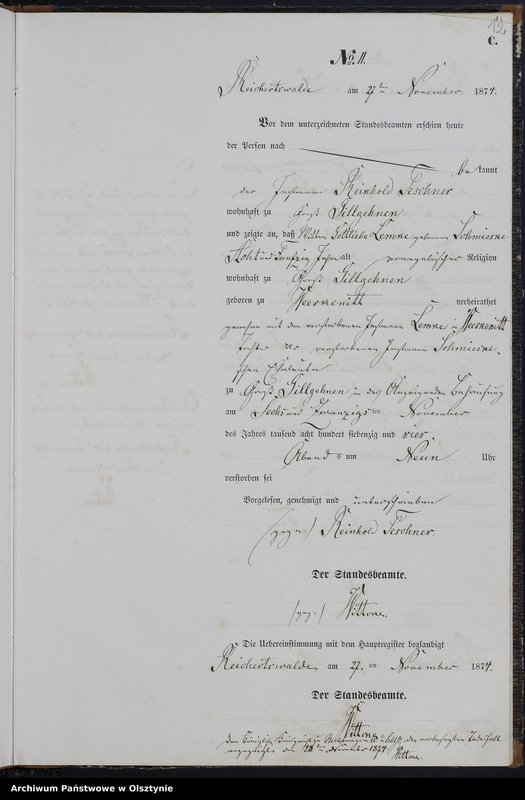 12
C.
No. 11.
Reichertswalde am 27ten November 1874.
Vor dem unterzeichneten Standesbeamten erschien heute
der Person nach
bekannt
der Instmann Reinhold Teschner
wohnhaft zu Groß Gillgehnen
und zeigte an, daß Gottliebe Lemke geborene Schmieske
Acht und Funfzig Jahre alt evangelischer Religion
wohnhaft zu Groß Gillgehnen
geboren zu Weeskenitt verheirathet
gewesen mit dem verstorbenen Instmann Lemke in Weeskenitt
Tochter des verstorbenen Instmann Schmieske-
schen Eheleute
zu Groß Gillgehnen in des Anzeigenden Behausung
am Sechs und Zwanzigsten November
des Jahres tausend acht hundert siebenzig und vier
Abends um Neun Uhr
verstorben sei
Vorgelesen, genehmigt und unterschrieben
(gez.) Reinhold Teschner.
Der Standesbeamte.
(gez.) Wittons.
Die Uebereinstimmung mit dem Hauptregister beglaubigt
Reichertswalde, am 27.ten November 1874.
Der Standesbeamte.
Wittons
angezeigt den 28ten November 1874 Wittons.
Archiwum Państwowe w Olsztynie